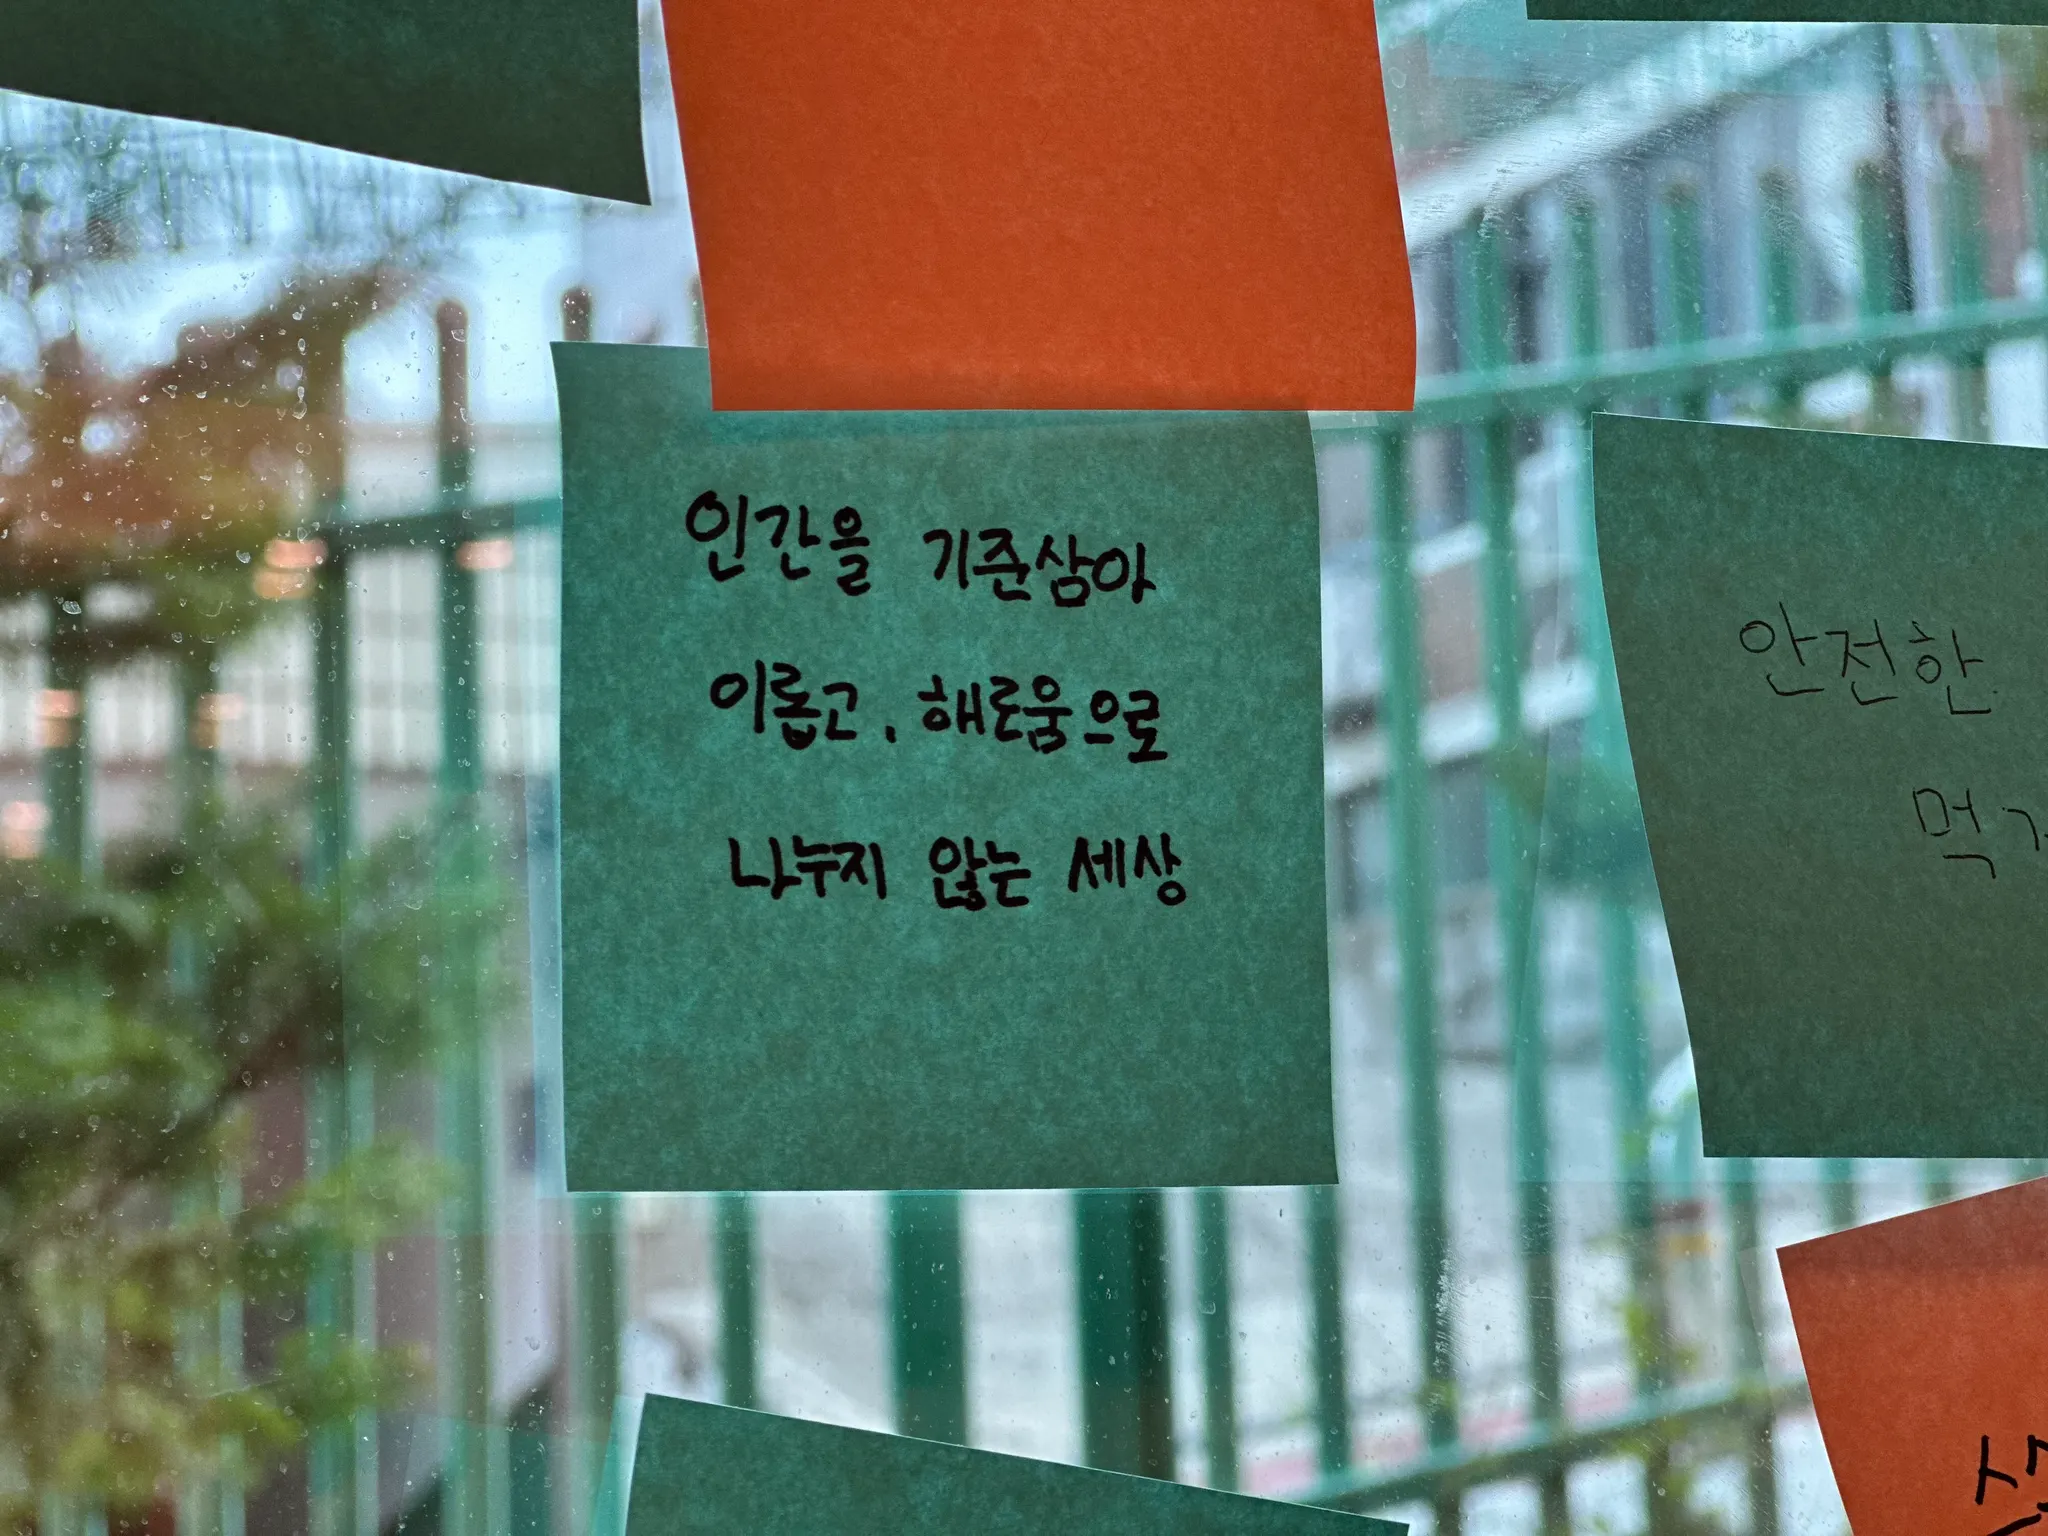 인간을 기준삼아
이롭고, 해로움으로
나누지 않는 세상
안전한
먹거